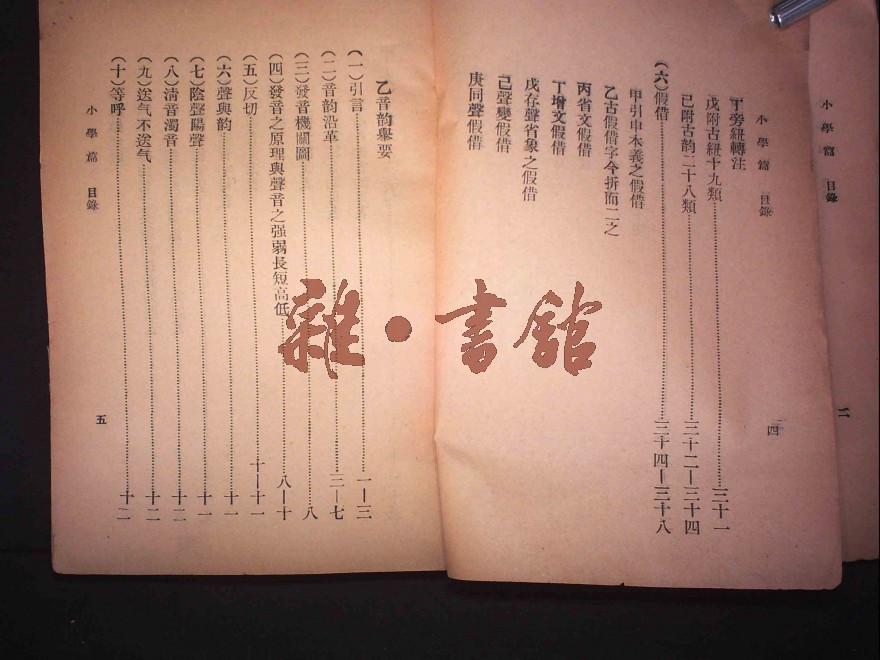 小學篇 目錄
二
小學篇 目錄
四
丁旁紐轉注
戊附古紐十九類……三十一
己附古韵二十八類……三十二—三十四
(六)假借……三十四—三十八
甲引申本義之假借
乙古假借字今拆而二之
丙省文假借
丁增文假借
戊存聲省象之假借
己聲變假借
庚同聲假借
乙音韵舉要
(一)引言……一—三
(二)音韵沿革……三—七
(三)發音機關圖……八
(四)發音之原理與聲音之强弱長短高低……八—十
(五)反切……十—十一
(六)聲與韵……十一
(七)陰聲陽聲……十一
(八)清音濁音……十二
(九)送气不送气……十二
(十)等呼……十二
小學篇 目錄
五
雜·書館